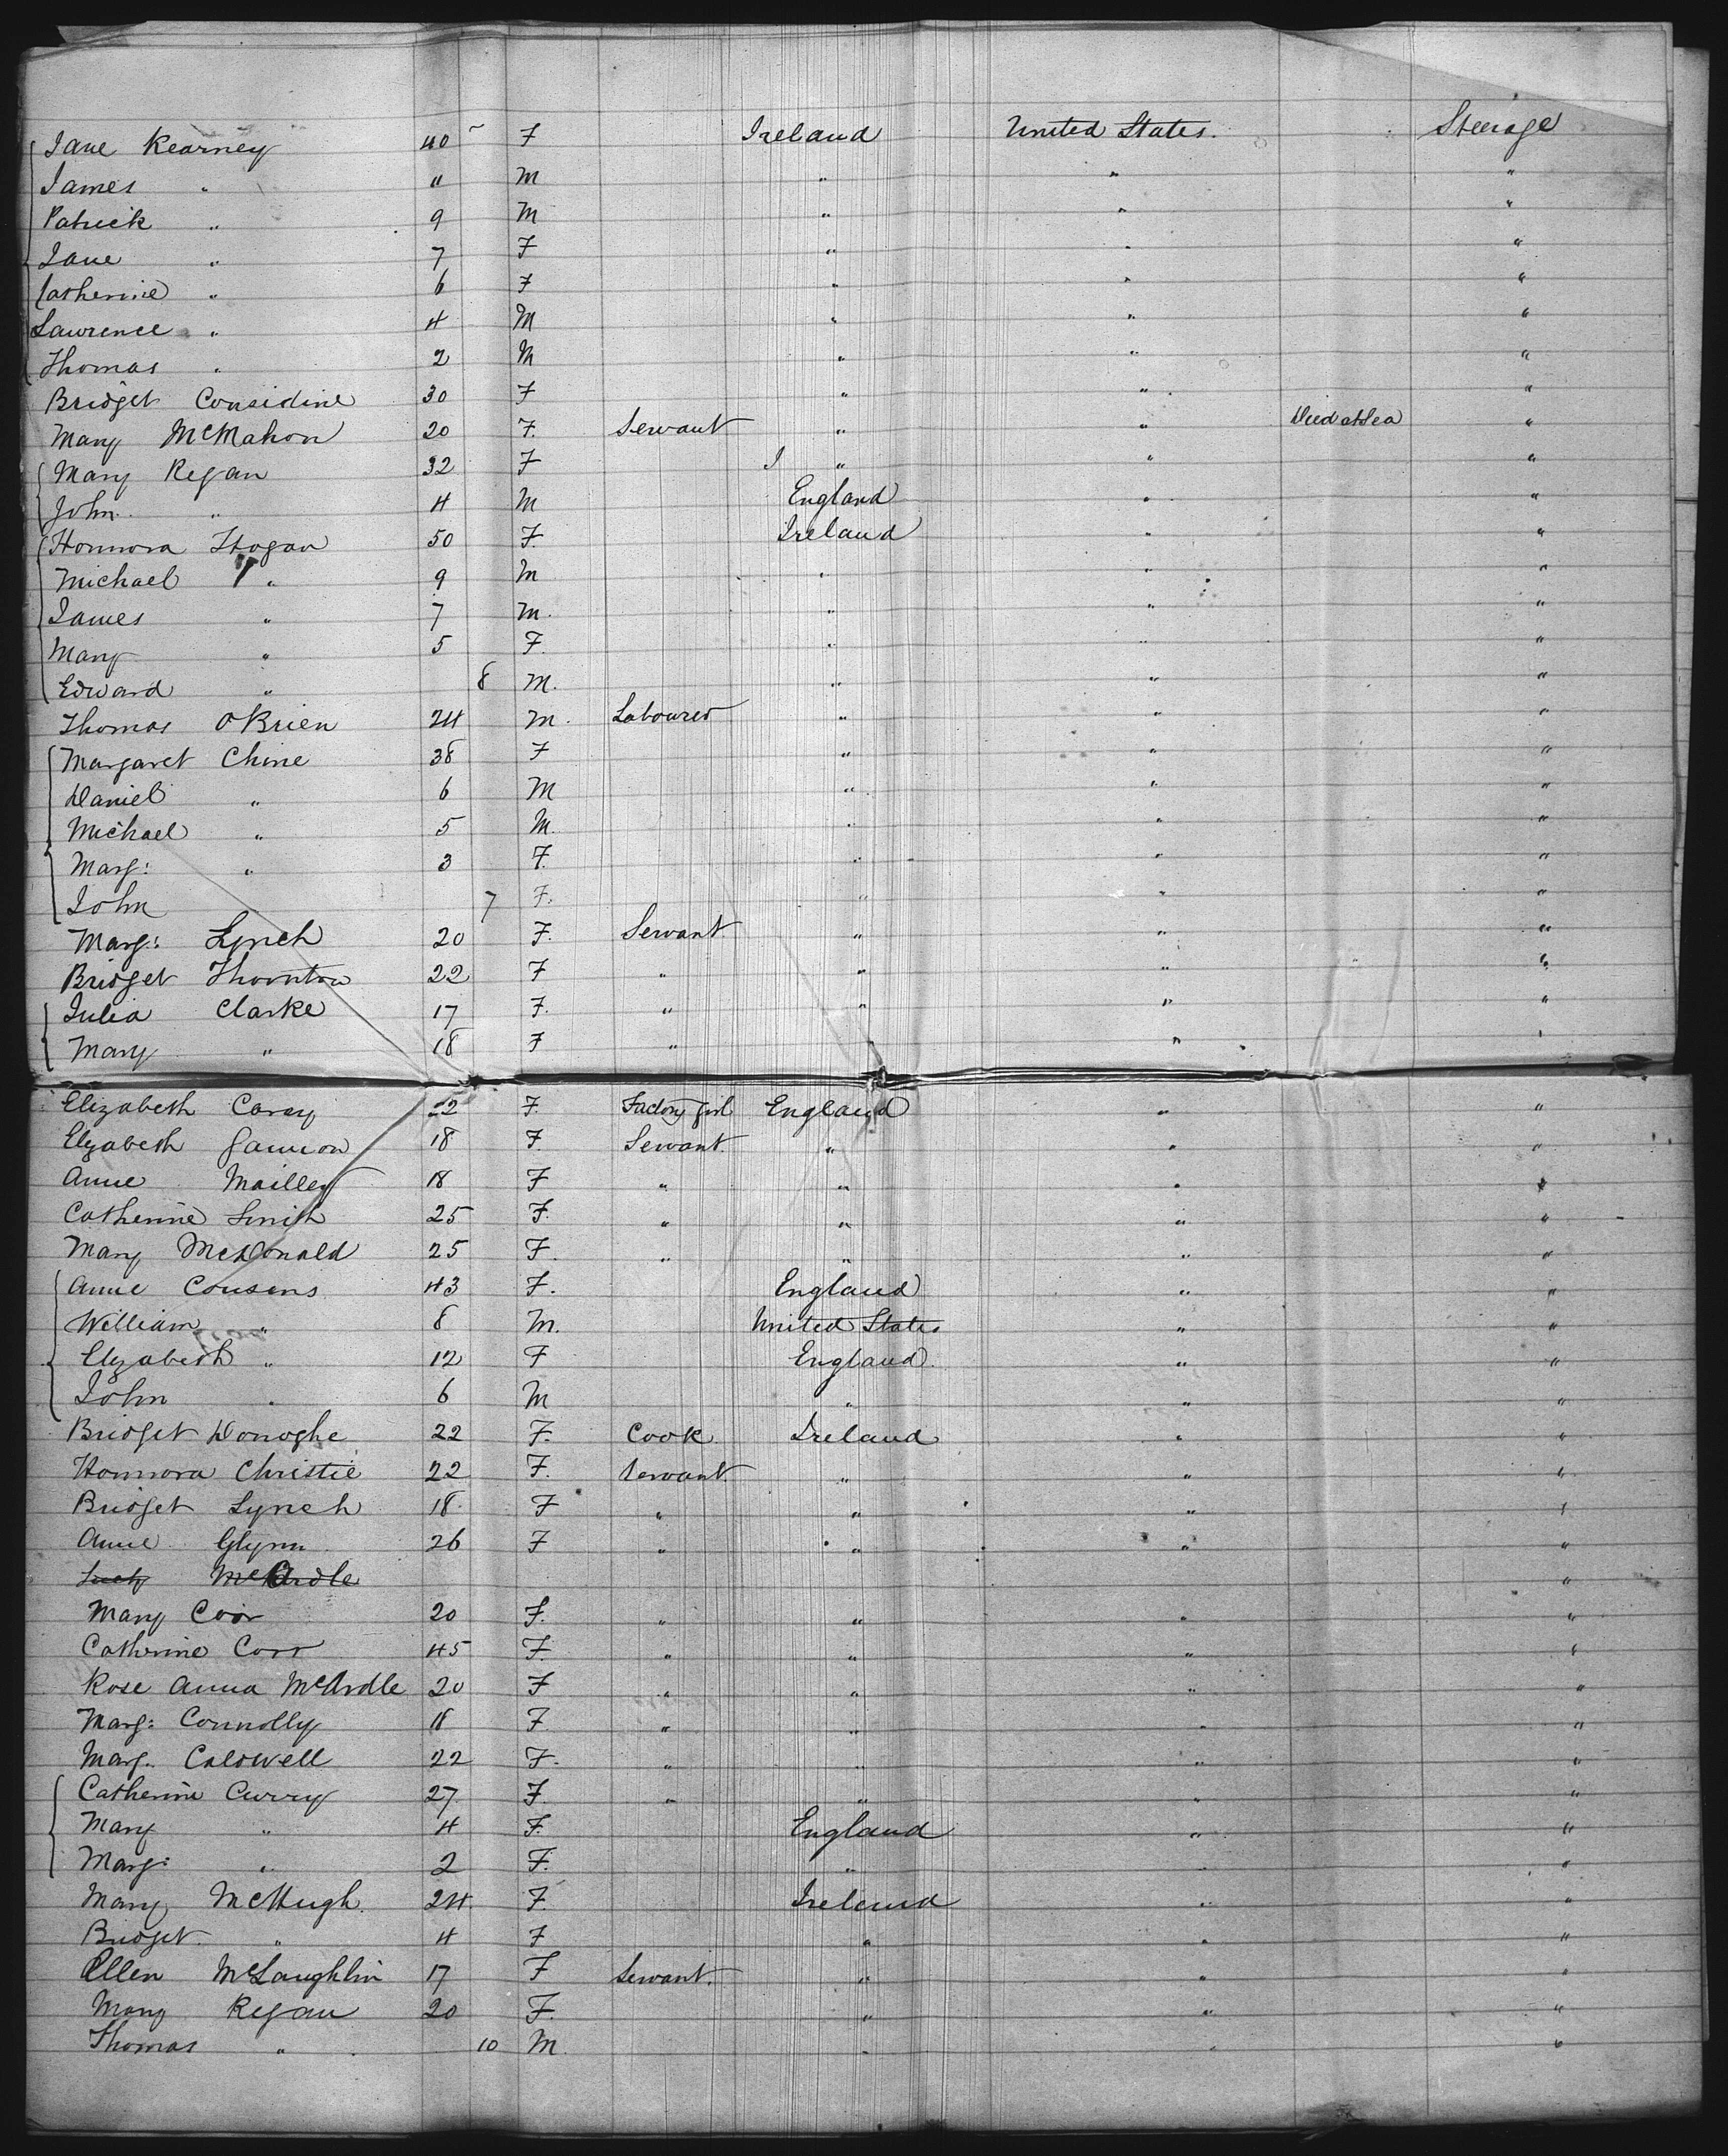 Jane Kearney 40 F Ireland United States. Steerage
James " 11 M " " "
Patrick " 9 M " " "
Jane " 7 F " " "
Catherine " 6 F " " "
Lawrence " 4 M " " "
Thomas " 2 M " " "
Bridget Considine 30 F " " "
Mary McMahon 20 F. Servant " " Died at Sea "
Mary Regan 32 F I " " "
John " 4 M England " "
Honnora Hogan 50 F. Ireland " "
Michael " 9 M " " "
James " 7 M. " " "
Mary " 5 F. " " "
Edward " 8 M. " " "
Thomas O'Brien 24 M. Labourer " " "
Margaret Chine 38 F " " "
Daniel " 6 M " " "
Michael " 5 M. " " "
Marg: " 3 F. " " "
John 7 F. " " "
Marg: Lynch 20 F. Servant " " "
Bridget Thornton 22 F " " " "
Julia Clarke 17 F. " " " "
Mary " 18 F " " "
Elizabeth Carey 22 F. Factory girl England " "
Elizabeth Gannon 18 F. Servant. " " "
Anne Mailley 18 F " " " "
Catherine Smith 25 F. " " " "
Mary McDonald 25 F. " " " "
Anne Cousens 43 F. England " "
William " 8 M. United States " "
Elizabeth " 12 F England " "
John " 6 M " " "
Bridget Donoghe 22 F. Cook Ireland " "
Honnora Christie 22 F. Servant " " "
Bridget Lynch 18 F " " " "
Anne Glynn 26 F " " " "
Lucy McArdle "
Mary Corr 20 F. " " " "
Catherine Corr 45 F. " " " "
Rose Anna McArdle 20 F " " " "
Marg: Connolly 18 F. " " " "
Marg. Caldwell 22 F. " " " "
Catherine Curry 27 F. " " " "
Mary " 4 F. England " "
Marg: " 2 F. " " "
Mary McHugh. 24. F. Ireland " "
Bridget " 4 F " " "
Ellen McLaughlin 17 F Servant. " " "
Mary Regan 20 F. " " "
Thomas " 10 M. " " "